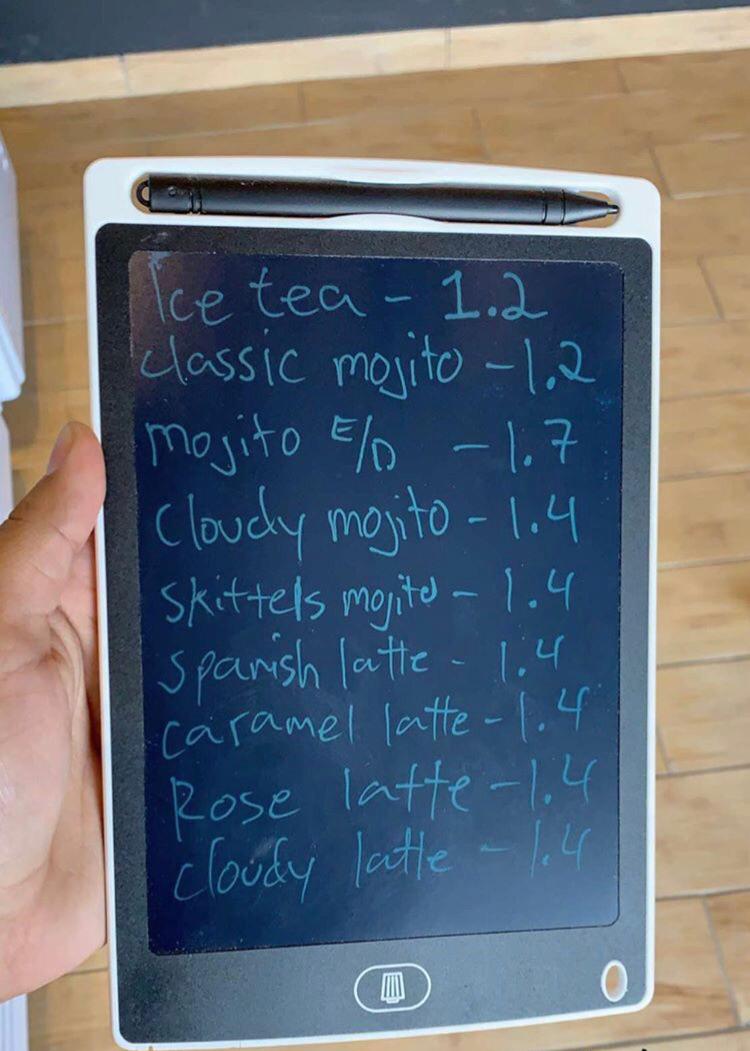 Ice tea - 1.2
classic mojito - 1.2
mojito E/D - 1.7
cloudy mojito - 1.4
skittels mojito - 1.4
spanish latte - 1.4
caramel latte - 1.4
Rose latte - 1.4
cloudy latte - 1.4